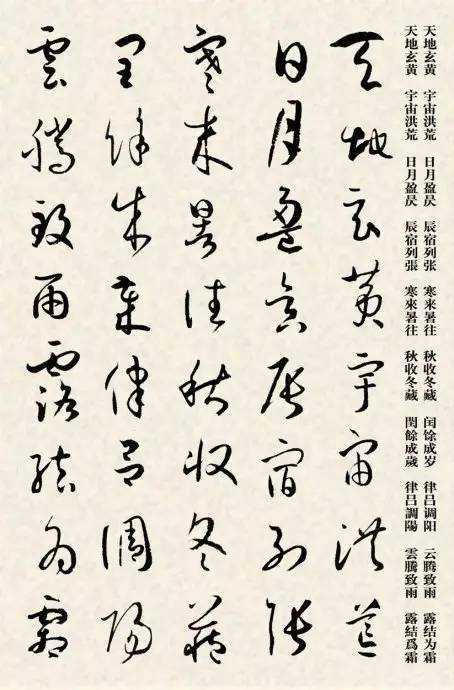 天地玄黄 宇宙洪荒 日月盈昃 辰宿列张 寒来暑往 秋收冬藏 闰馀成岁 律吕调阳 云腾致雨 露结为霜
天地玄黃 宇宙洪荒 日月盈昃 辰宿列張 寒來暑往 秋收冬藏 閏餘成歲 律呂調陽 雲騰致雨 露結爲霜
天地玄黃宇宙洪荒
日月盈昃辰宿列張
寒來暑往秋收冬藏
閏餘成歲律呂調陽
雲騰致雨露結爲霜